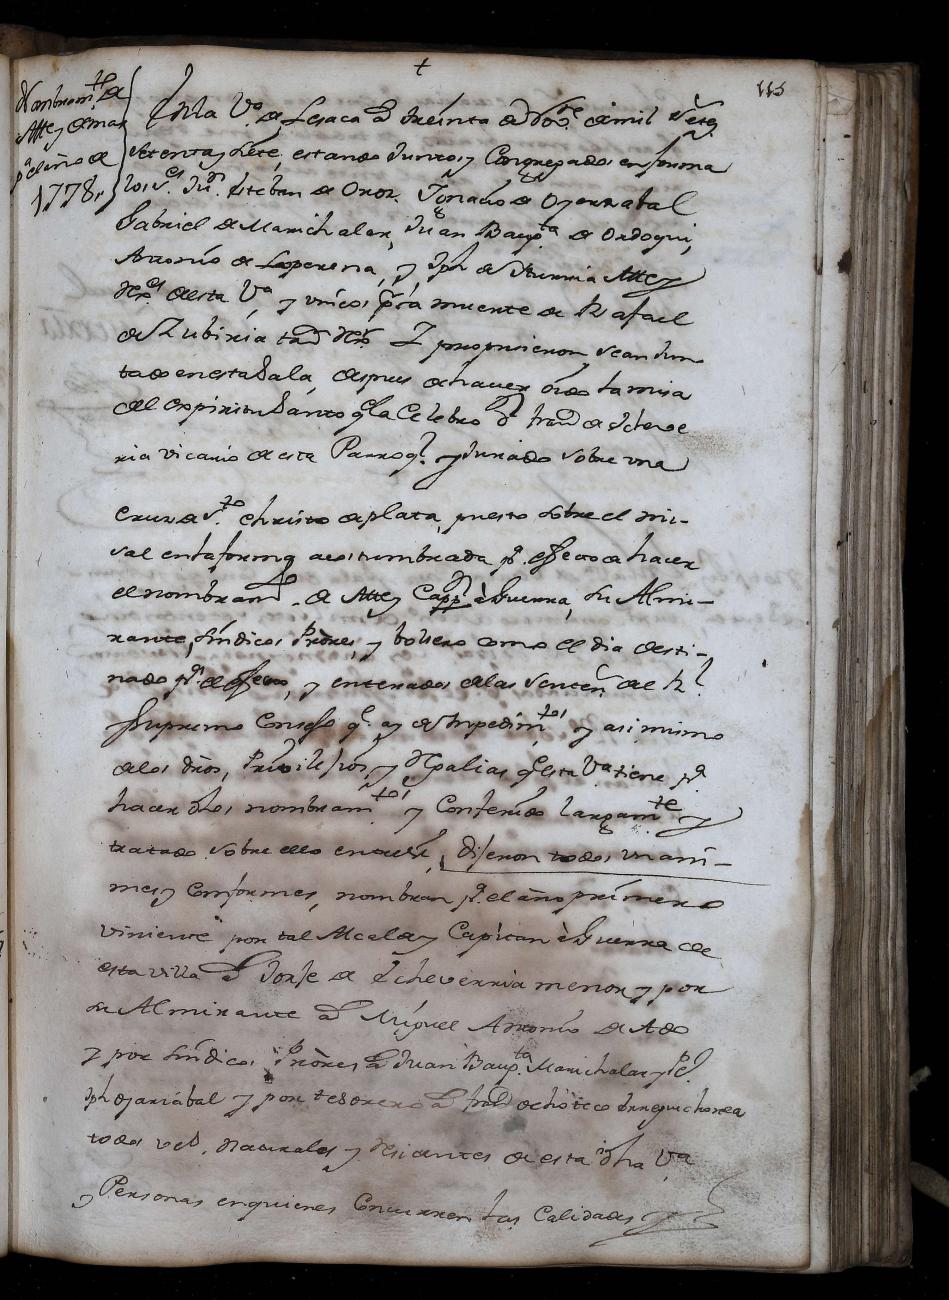 +
115
Nombram.to de
Alte y demas
p.a el año de
1778.
En la V.a de Lesaca a treinta de Dre. de mil Setes.
Setenta y Siete, estando Juntos y Congregados en forma
los S.res Ju.n Esteban de Oroz, Ignacio de Oyarzabal
Gabriel de Marichalar, Juan Baup.ta de Ordoqui,
Antonio de Loperena, y Jph de Iturria Alte y
Rex.es de esta V.a y unicos p.ra muerte de Rafael
de Zubiria tam.n Rex.r I propusieron se an Jun-
tado en esta Sala, despues de haver oido la misa
del expiritu Santo q.e la Celebro D.n fran.co de Echeve
rria vicario de esta Parroq.l y Jurado sobre una
Cruz de S.to Christo de plata, puesto sobre el mi-
sal en la forma acostumbrada p.a efecto de hacer
el nombram.to de Alte y Cap.n à Guerra, su Almi-
rante, Sindicos Prõres, y bolsero como el dia desti-
nado p.a el efecto, y enterados de las Senten.s del R.l
Supremo Consejo q.e ay de Impedim.tos y asi mismo
de los dros, Privilejios, y Regalias q.e esta V.a tiene p.a
hacer dhos nombram.tos y Conferido largam.te y
tratado sobre ello entre si, dijeron todos unani-
mes y Conformes, nombran p.a el año primero
viniente por tal Alcalde y Capitan à Guerra de
esta villa a Jorje de Echeverria menor y por
su Almirante a Miguel Antonio de
y por Sindicos Prõres a Juan Baup.ta Marichalar y P.o
Jph oyarzabal y por tesorero a fran.co de
todos vez.s Naturales y Residentes de esta dha V.a
y Personas en quienes Concurren las Calidades